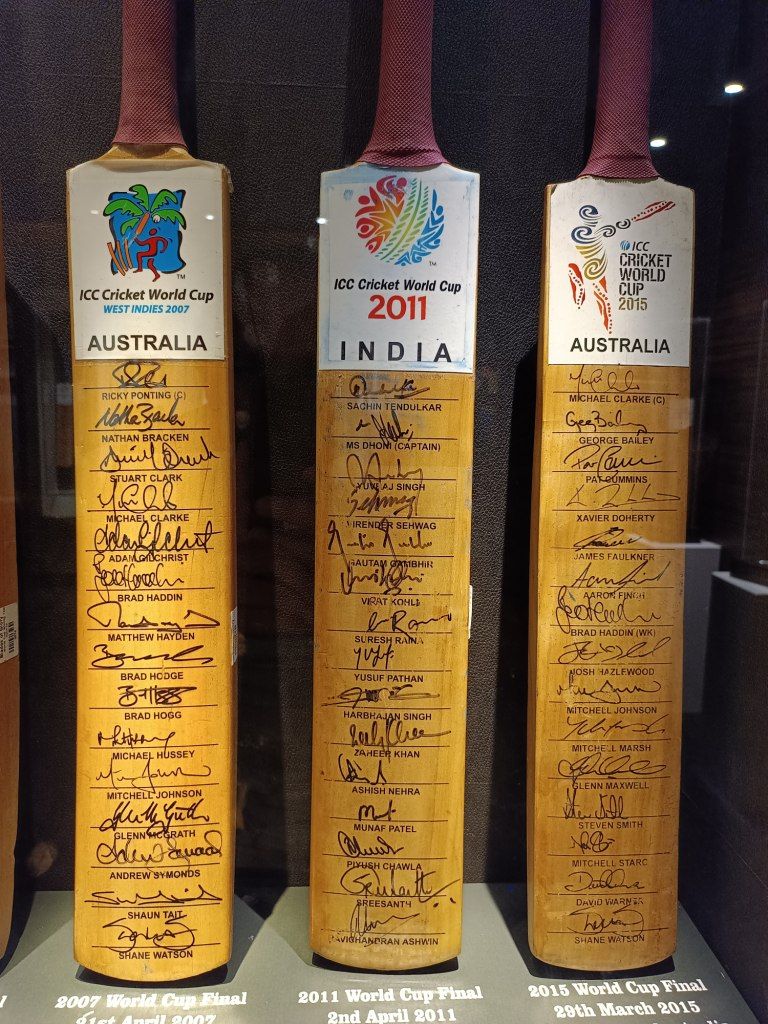 TM
ICC Cricket World Cup
WEST INDIES 2007
AUSTRALIA
RICKY PONTING (C)
NATHAN BRACKEN
STUART CLARK
MICHAEL CLARKE
ADAM GILCHRIST
BRAD HADDIN
MATTHEW HAYDEN
BRAD HODGE
BRAD HOGG
MICHAEL HUSSEY
MITCHELL JOHNSON
GLENN MCGRATH
ANDREW SYMONDS
SHAUN TAIT
SHANE WATSON
2007 World Cup Final
21st April 2007
TM
ICC Cricket World Cup
2011
INDIA
SACHIN TENDULKAR
MS DHONI (CAPTAIN)
YUVRAJ SINGH
VIRENDER SEHWAG
GAUTAM GAMBHIR
VIRAT KOHLI
SURESH RAINA
YUSUF PATHAN
HARBHAJAN SINGH
ZAHEER KHAN
ASHISH NEHRA
MUNAF PATEL
PIYUSH CHAWLA
SREESANTH
RAVICHANDRAN ASHWIN
2011 World Cup Final
2nd April 2011
ICC
CRICKET
WORLD
CUP
2015
AUSTRALIA
MICHAEL CLARKE (C)
GEORGE BAILEY
PAT CUMMINS
XAVIER DOHERTY
JAMES FAULKNER
AARON FINCH
BRAD HADDIN (WK)
JOSH HAZLEWOOD
MITCHELL JOHNSON
MITCHELL MARSH
GLENN MAXWELL
STEVEN SMITH
MITCHELL STARC
DAVID WARNER
SHANE WATSON
2015 World Cup Final
29th March 2015